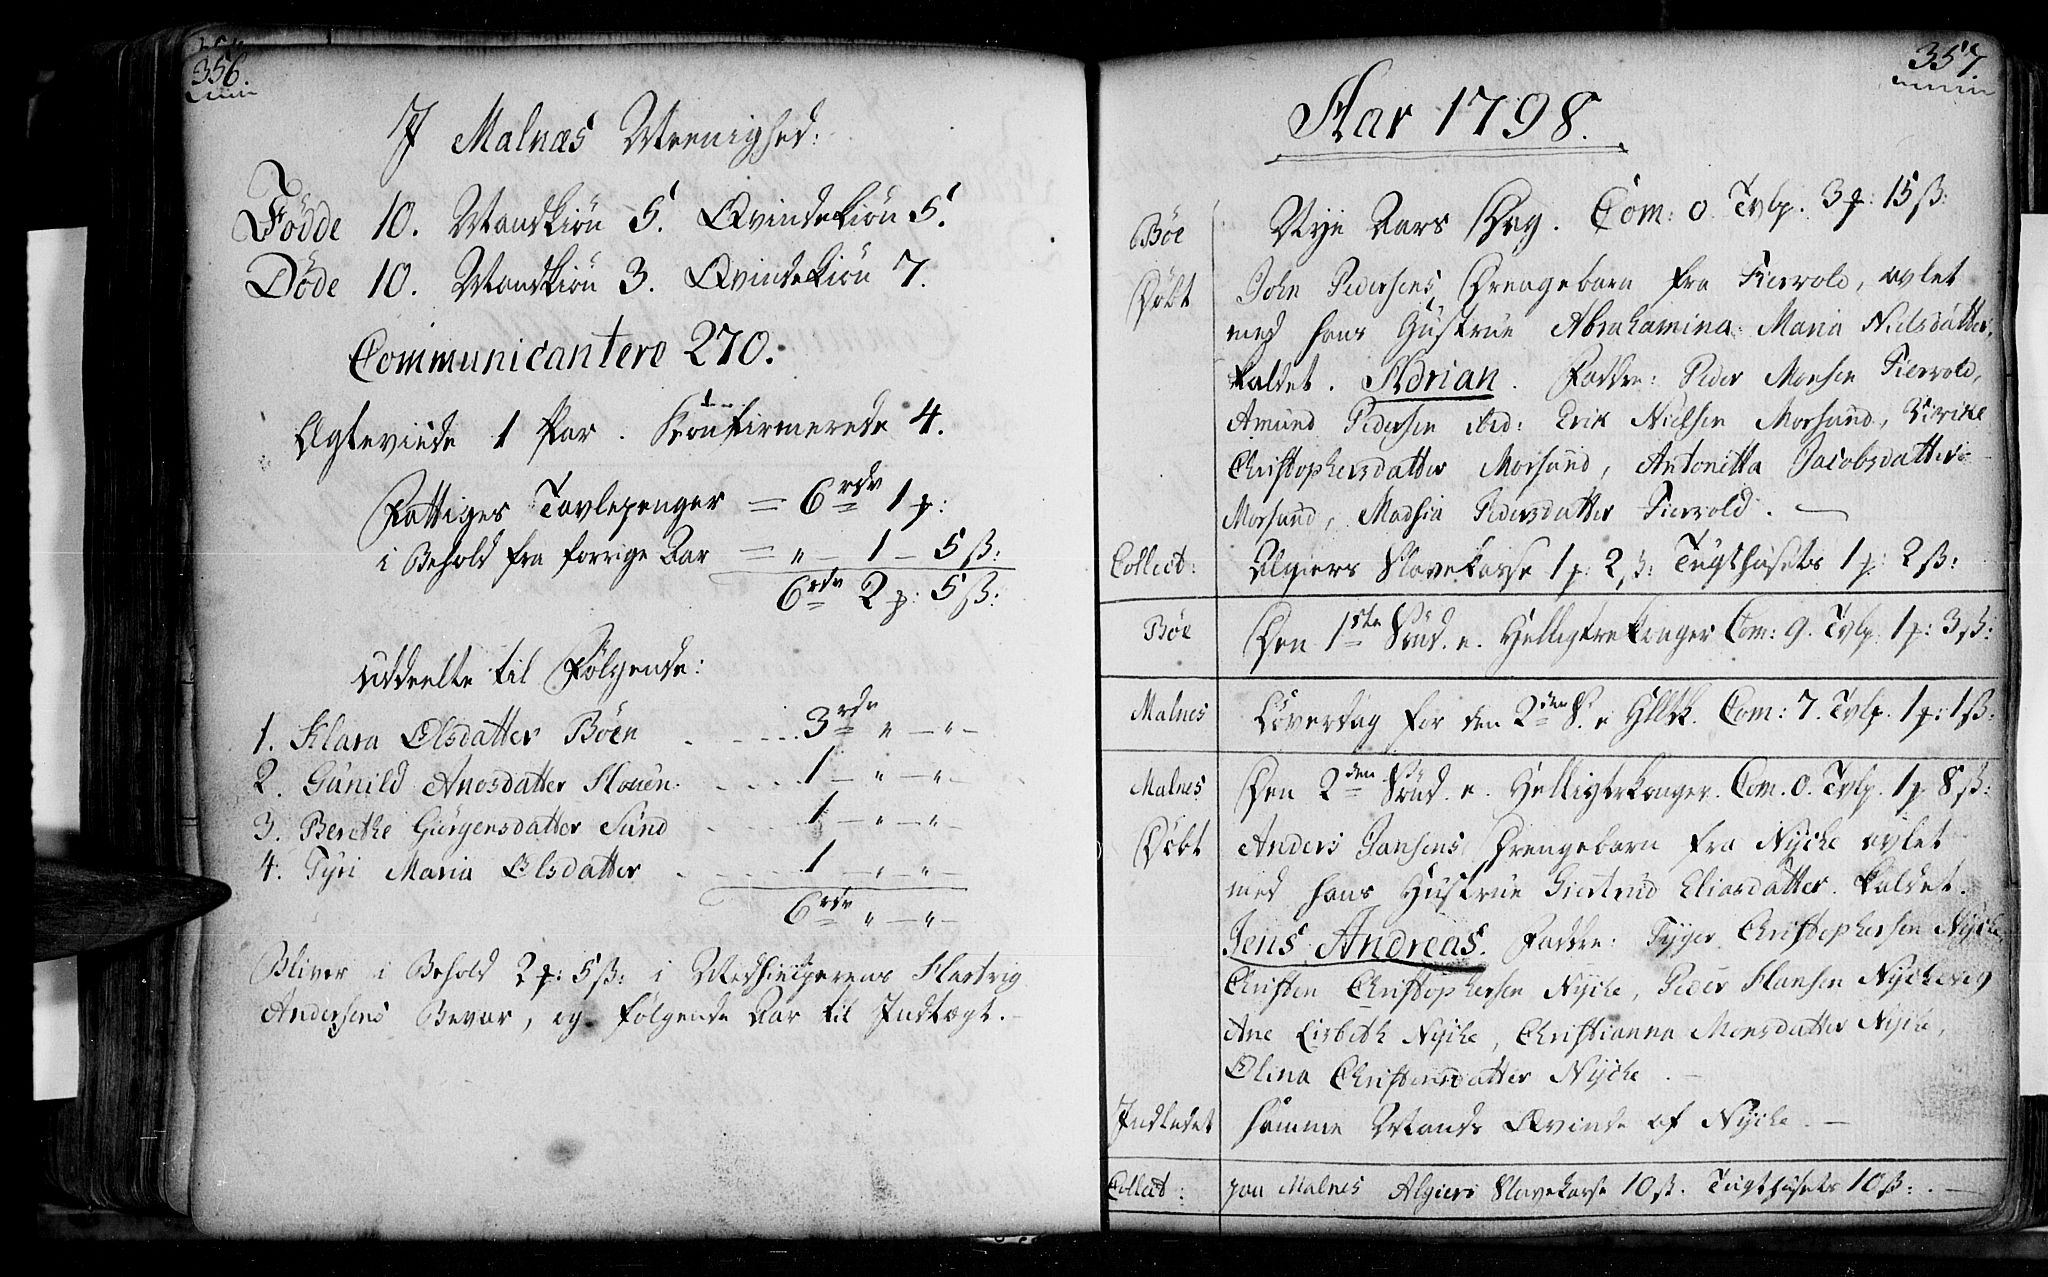 356.
I Malnæs Meenighed:
Fødde 10. Mandkiön 5. Qvindekiön 5.
Døde 10. Mandkiön 3. Qvindekiön 7.
Communicantere 270.
Ægteviede 1 Par. Konfirmerede 4.
Fattiges Tavlepenger = 6 rdr 1 p:
i Behold fra forrige Aar = " - 1 - 5 ß:
6 rdr 2 p: 5 ß:
Uddeelte til Følgende:
1. Klara Olsdatter Böen 3 rdr " - " -
2. Gunild Anosdatter 1 - " - " -
3. Berethe Giørgensdatter Sund 1 - " - " -
4. Tyri Maria Olsdatter 1 - " - " -
6 rdr " - " -
Bliver i Behold 2 p: 5 ß: i Medhielperens Hartvig
Andersens Bevar, og følgende Aar til Indtægt.
357
Aar 1798.
Bøe Nye Aars Dag. Com: 0. Tvlp. 3 p: 15 ß:
Döbt John Pedersens Drengebarn fra Fiervold, avlet
med hans Hustrue Abrahamina Maria Nielsdatter,
kaldet. Adrian. Faddre: Peder Monsen Fiervold,
Amund Pedersen ibid: Erik Nielsen Morsund,
Christophersdatter Morsund, Antonitta Jacobsdatter
Morsund, Madsia Pedersdatter Fiervold. -
Collect: Algiers Slavekasse 1 p: 2 ß: Tugthusets 1 p: 2 ß:
Bøe Den 1ste Sönd. e. Helligtrekonger Com: 9. Tvlp. 1 p: 3 ß:
Malnes Löverdag for den 2den S. e. Hlltk. Com: 7. Tvlp. 1 p: 1 ß:
Malnes Den 2den Sönd. e. Helligtrkonger. Com. 0. Tvlp. 1 p 8 ß:
Döbt Anders Jansens Drengebarn fra Nycke avlet
med hans Hustrue Giertrud Eliasdatter. kaldet.
Jens Andreas. Faddre: Tyger Christophersen Nycke
Christen Christophersen Nycke, Peder Hansen Nyckevog
Ane Lisbeth Nycke, Christianna Monsdatter Nycke,
Olina Christensdatter Nycke. -
Indledet Samme Mands Qvinde af Nycke. -
Collect: paa Malnes Algiers Slavekasse 10 ß. Tugthusets 10 ß: -